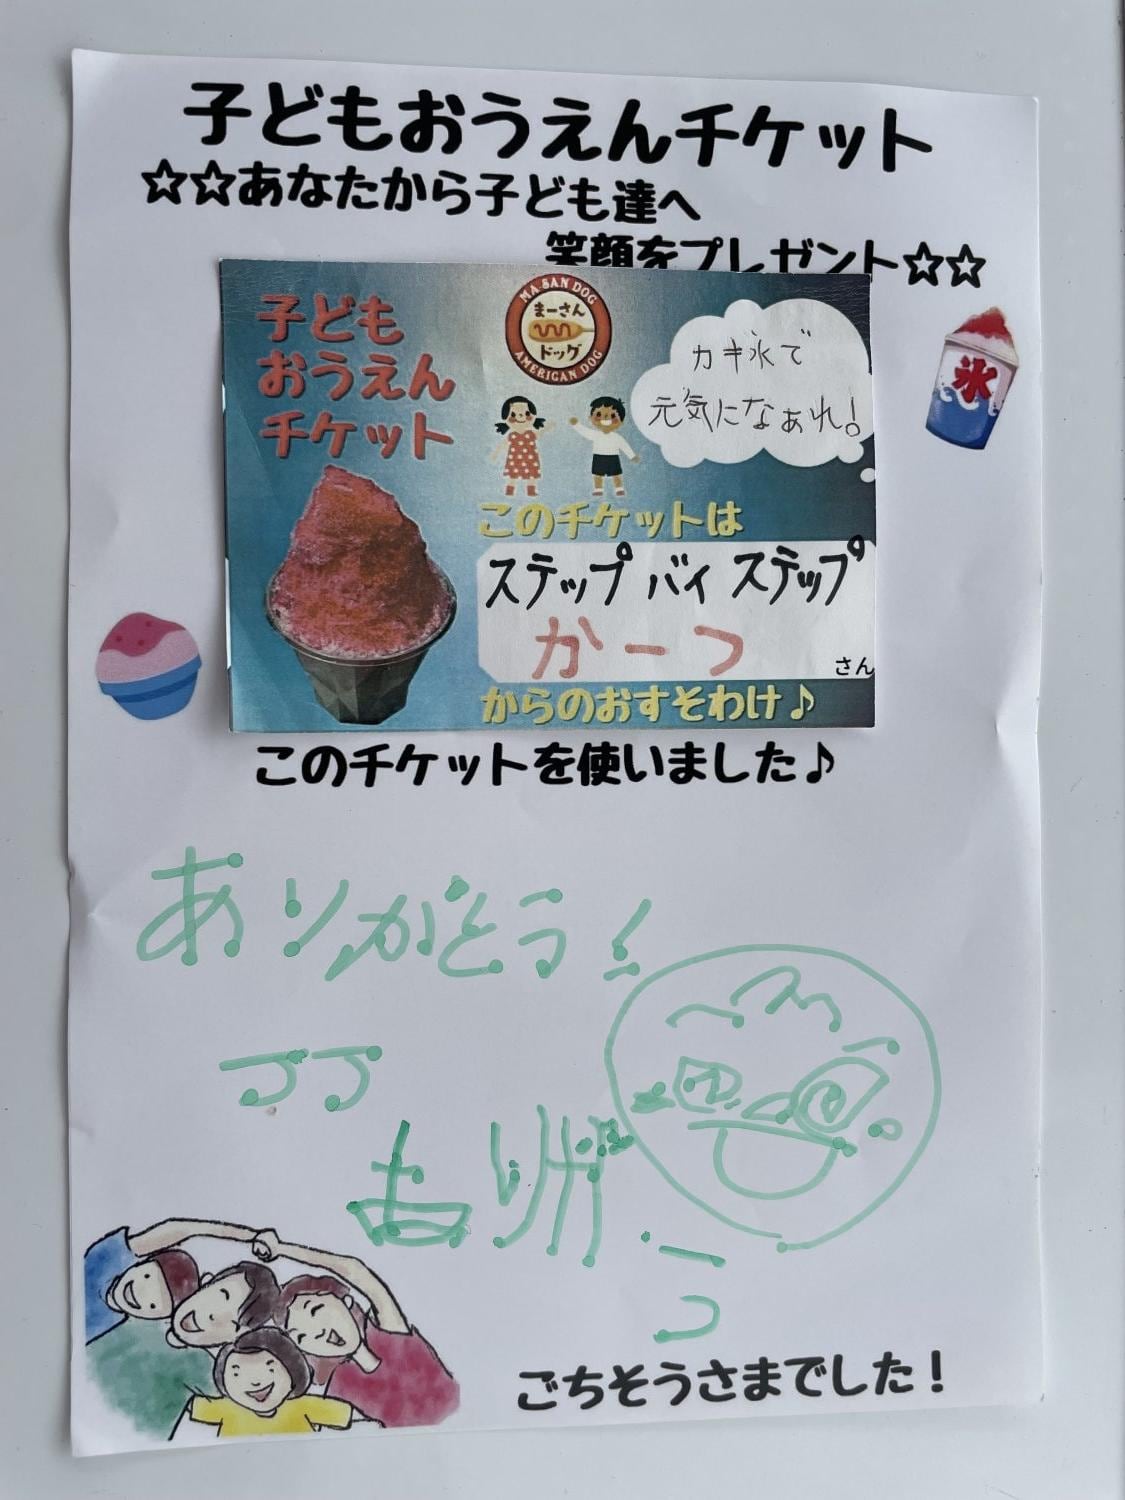 子どもおうえんチケット
☆☆あなたから子ども達へ
笑顔をプレゼント☆☆
氷
子ども
おうえん
チケット
MA SAN DOG
まーさん
ドッグ
AMERICAN DOG
カキ氷で
元気になぁれ!
このチケットは
ステップ バイ ステップ
かーつ
さん
からのおすそわけ♪
このチケットを使いました♪
ありがとう!
ごちそうさまでした!